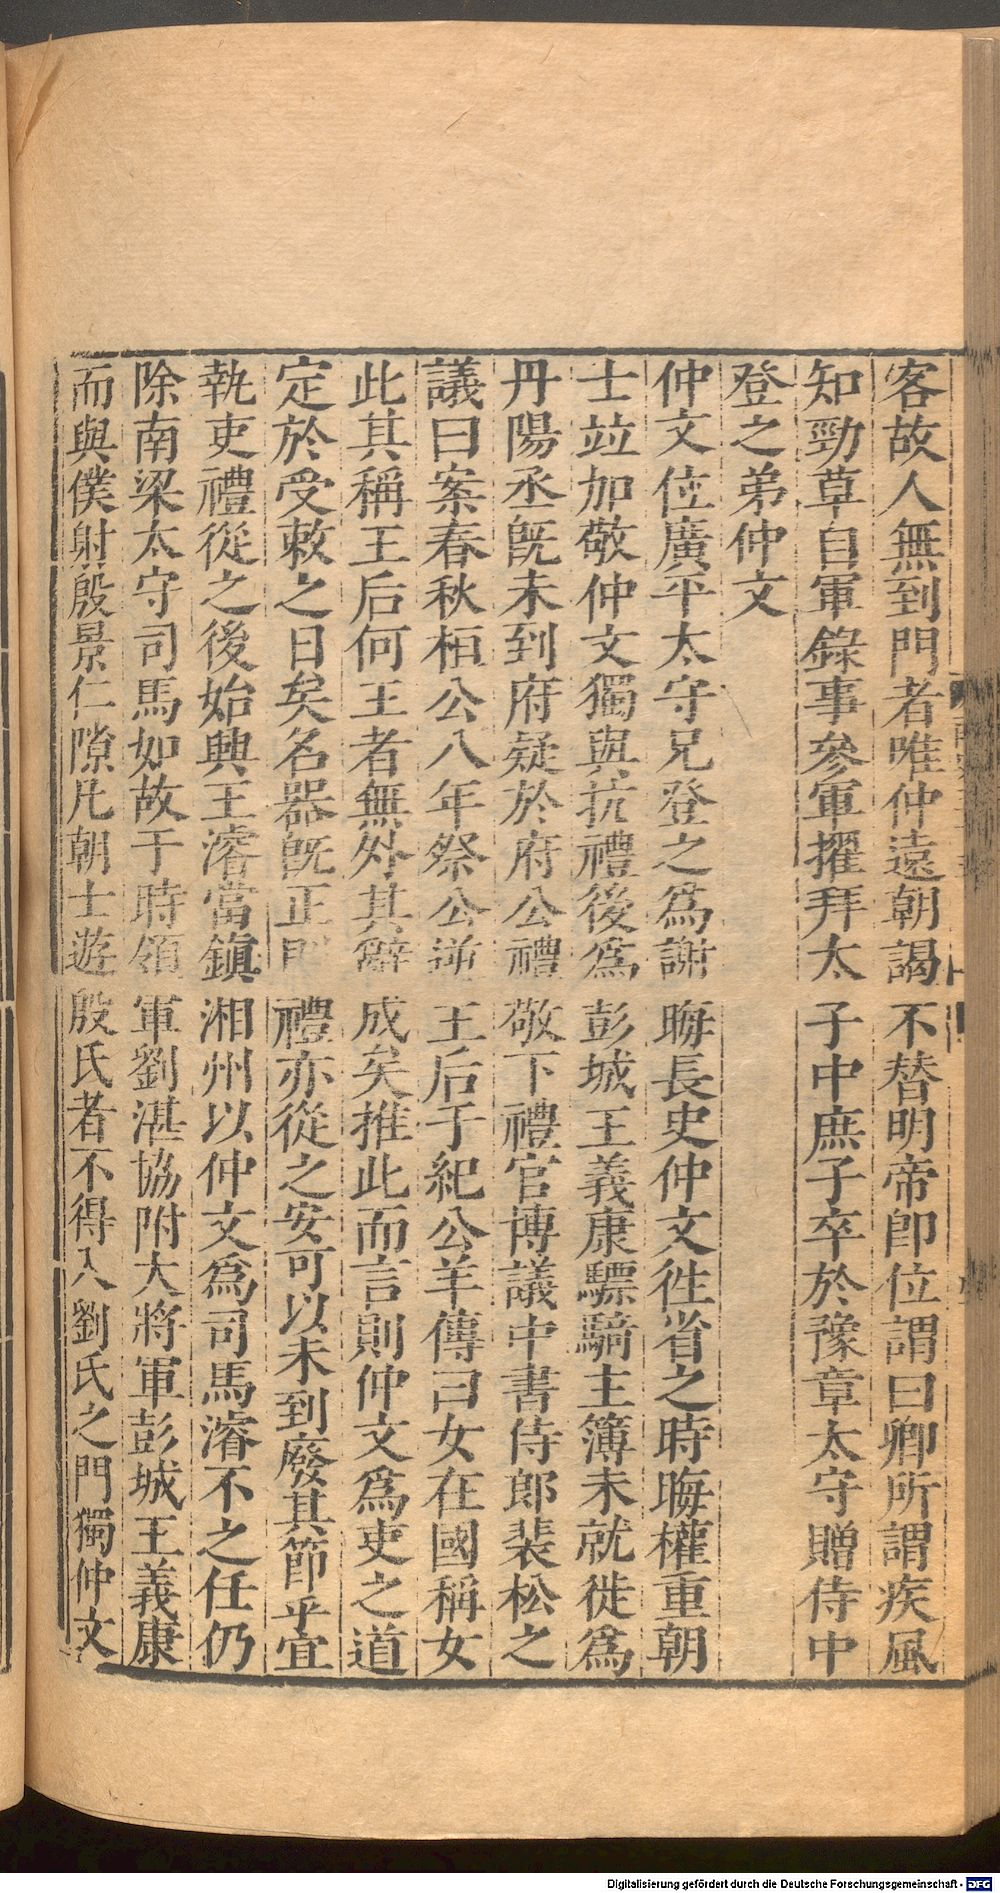 客故人無到門者唯仲遠朝謁不替明帝卽位謂曰卿所謂疾風
知勁草自軍錄事參軍擢拜太子中庶子卒於豫章太守贈侍中
登之弟仲文
仲文位廣平太守兄登之爲謝晦長史仲文徃省之時晦權重朝
士竝加敬仲文獨與抗禮後爲彭城王義康驃騎主簿未就徙爲
丹陽丞旣未到府疑於府公禮敬下禮官博議中書侍郎裴松之
議曰案春秋桓公八年祭公逆王后于紀公羊傳曰女在國稱女
此其稱王后何王者無外其辭成矣推此而言則仲文爲吏之道
定於受敕之日矣名器旣正則禮亦從之安可以未到廢其節乎宜
執吏禮從之後始興王濬當鎭湘州以仲文爲司馬濬不之任仍
除南梁太守司馬如故于時領軍劉湛協附大將軍彭城王義康
而與僕射殷景仁隙凡朝士遊殷氏者不得入劉氏之門獨仲文
Digitalisierung gefördert durch die Deutsche Forschungsgemeinschaft - DFG